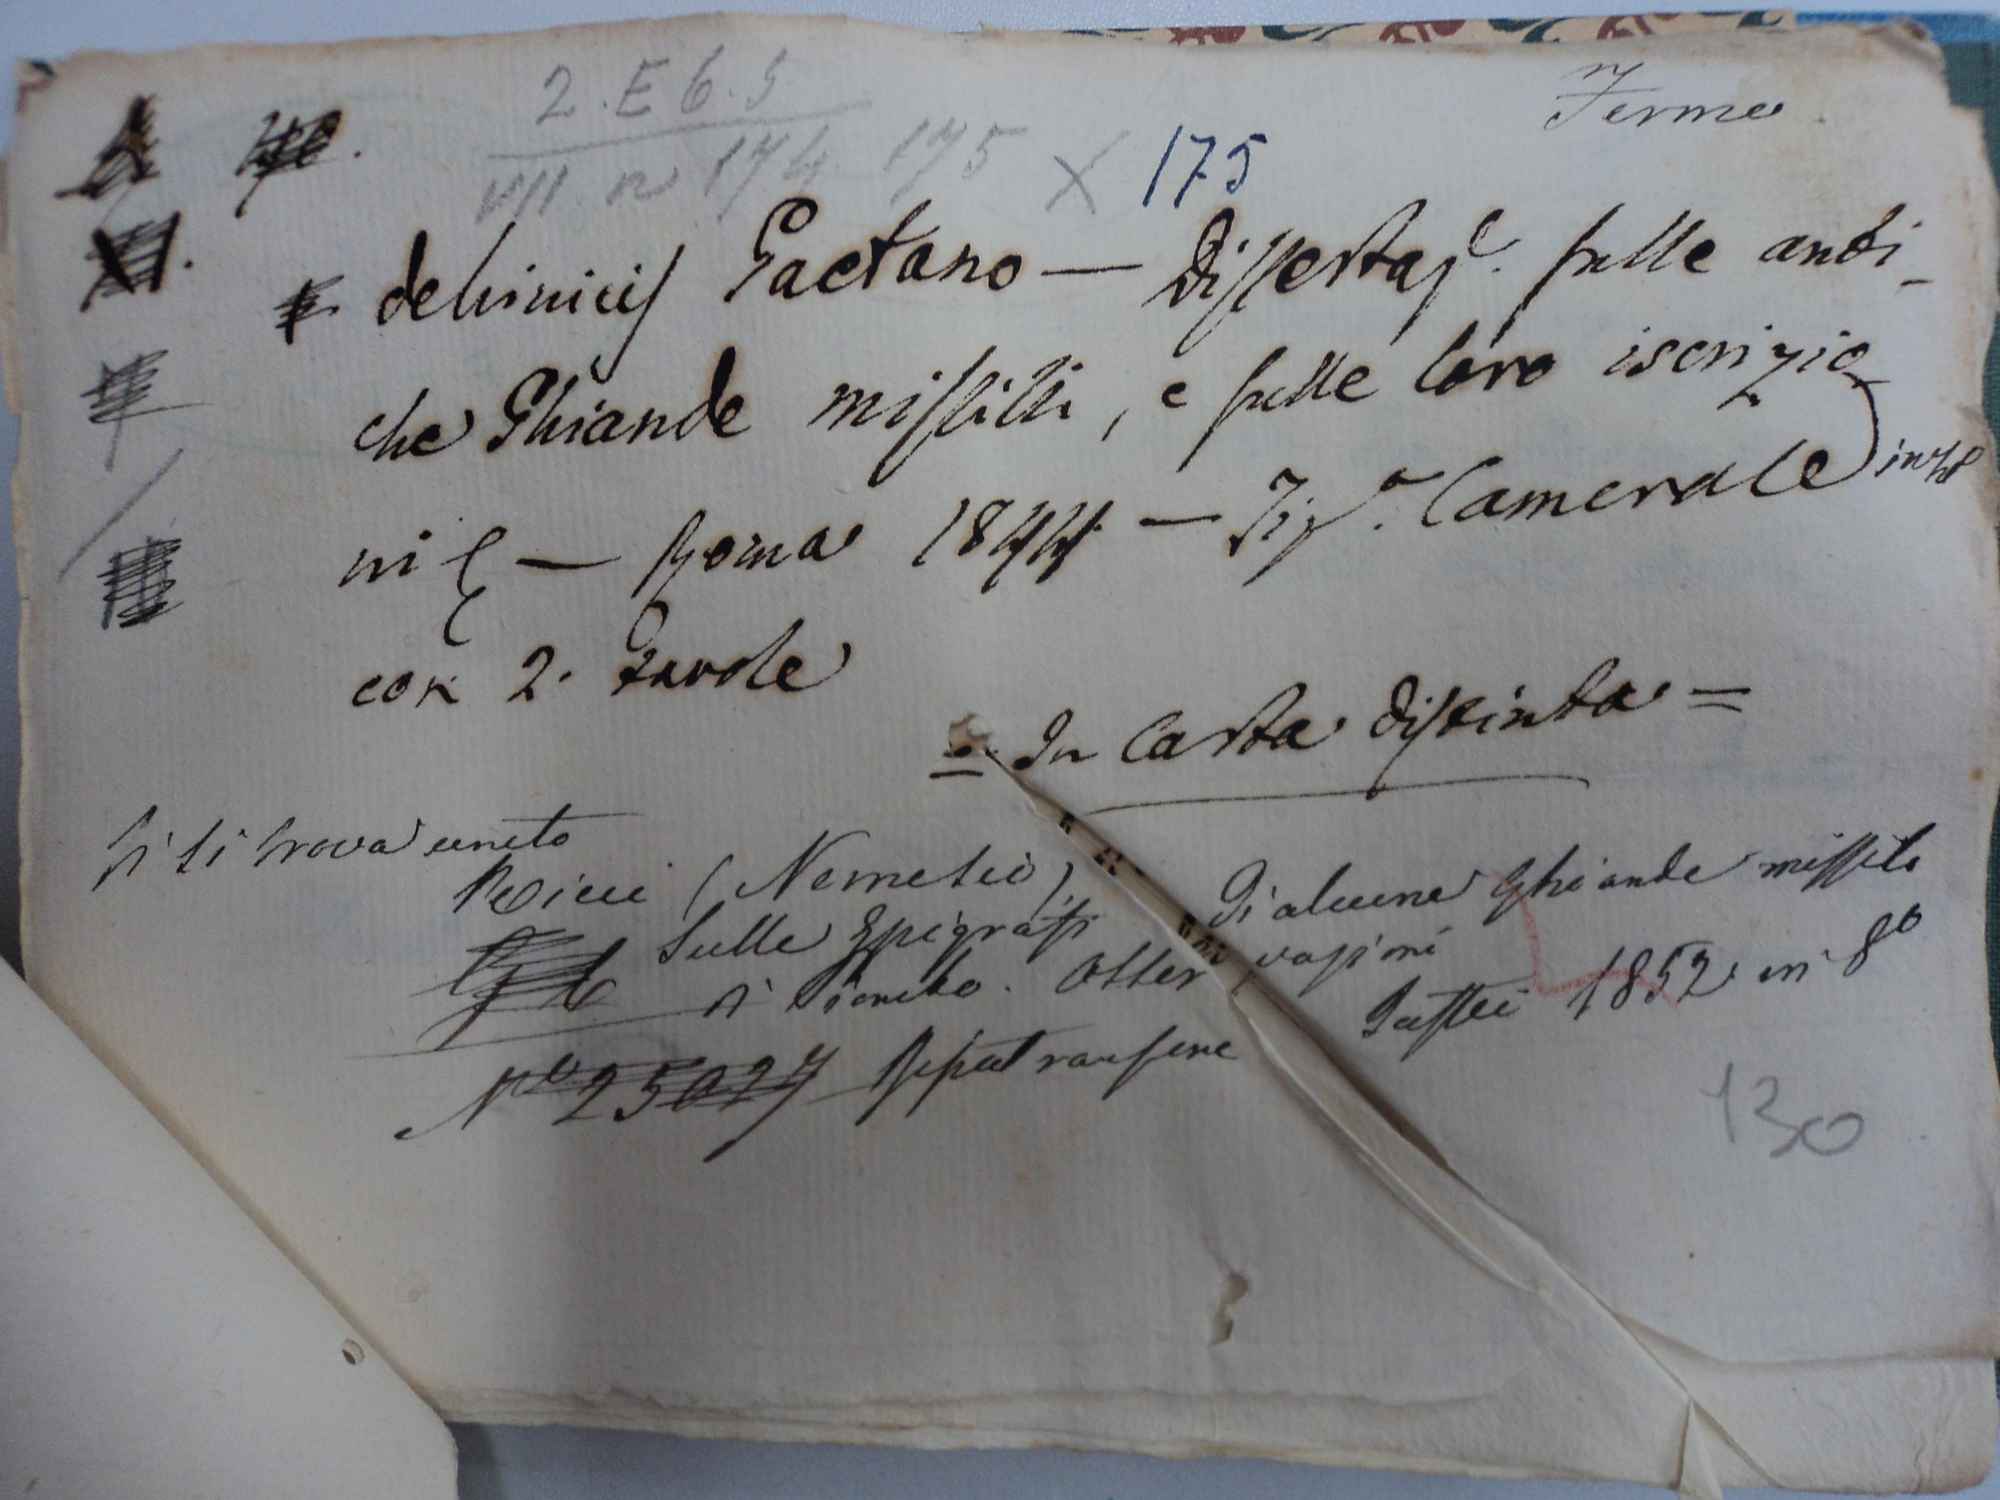 2. E 6. 5
Fermo
VII n 174 175 X 175
deMinicis Gaetano — Dissertaz.e sulle anti-
che Ghiande missilli, e sulle loro iscrizio
ni — Roma 1844 — Tip.a Camerale
con 2. tavole
= In carta distinta =
Vi si trova unito
Ricci (Nemesio) Di alcune Ghiande missili
Sulle Epigrafi
Osservazioni
Jaffei 1852 in 8o
No 25027 Ripatransone
130